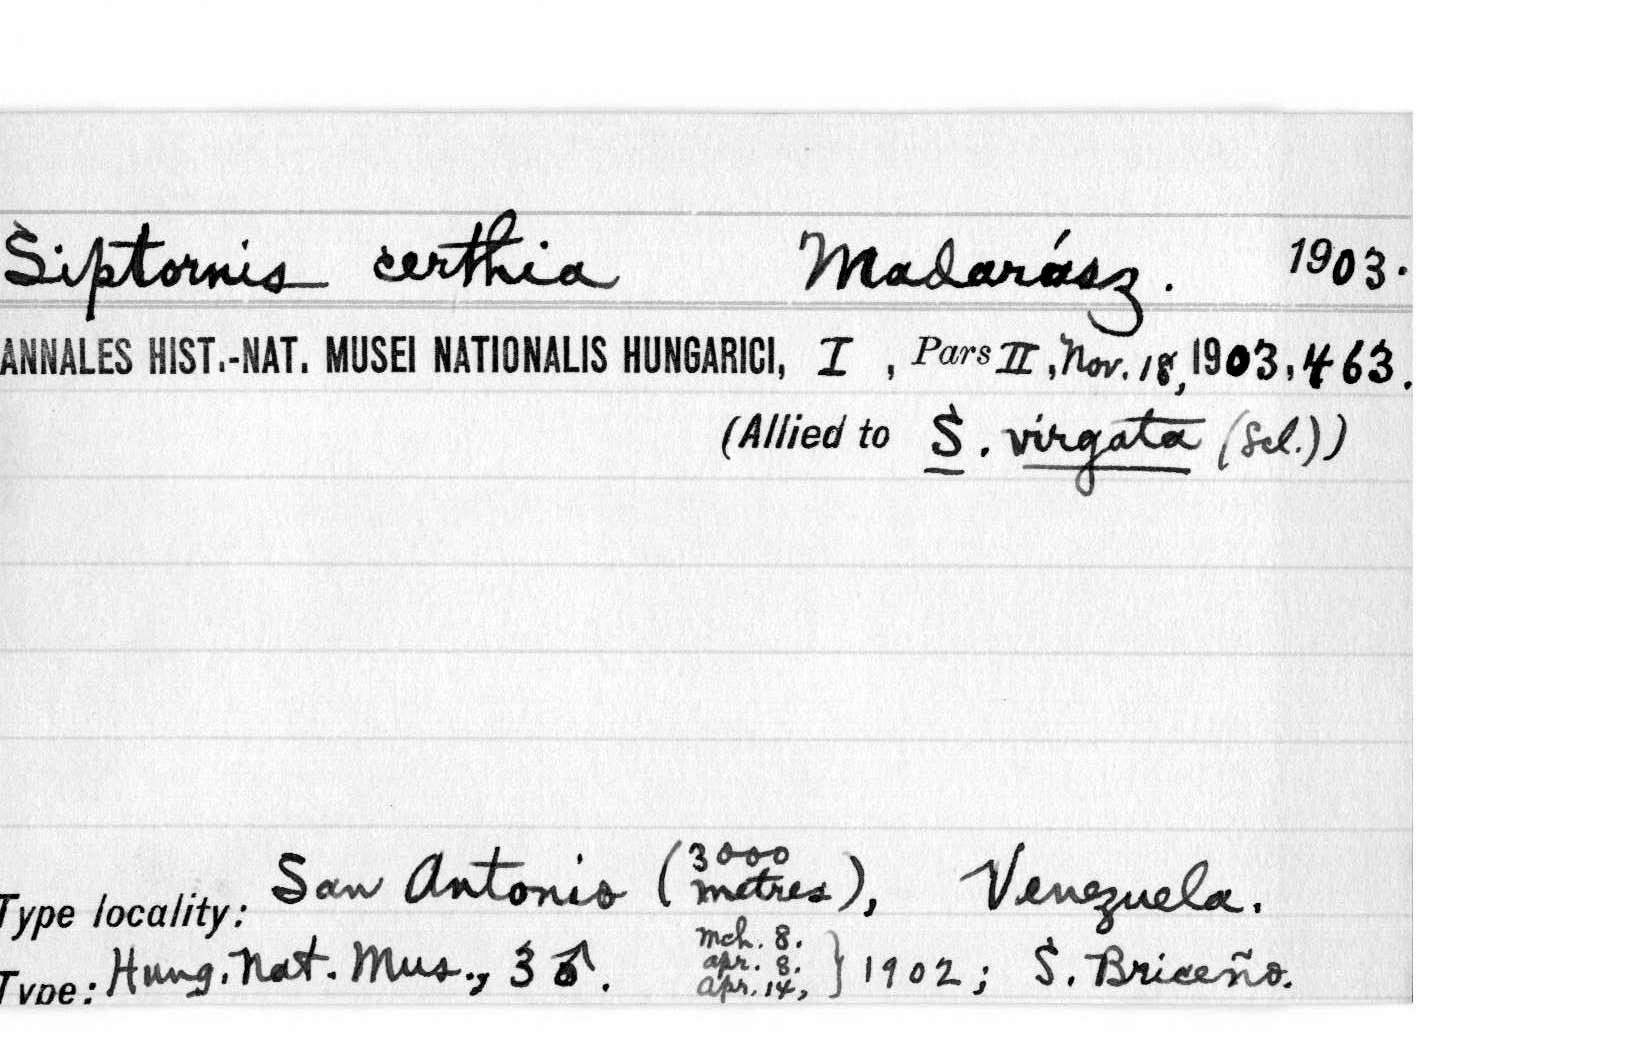 Siptornis certhia Madarász. 1903.
ANNALES HIST.-NAT. MUSEI NATIONALIS HUNGARICI, I, Pars II, Nov. 18, 1903, 463.
(Allied to S. virgata (Scl.))
Type locality: San Antonio (3000 metres), Venezuela.
Type: Hung. Nat. Mus., 3 ♂. Mch. 8. Apr. 8. Apr. 14, } 1902; S. Briceño.